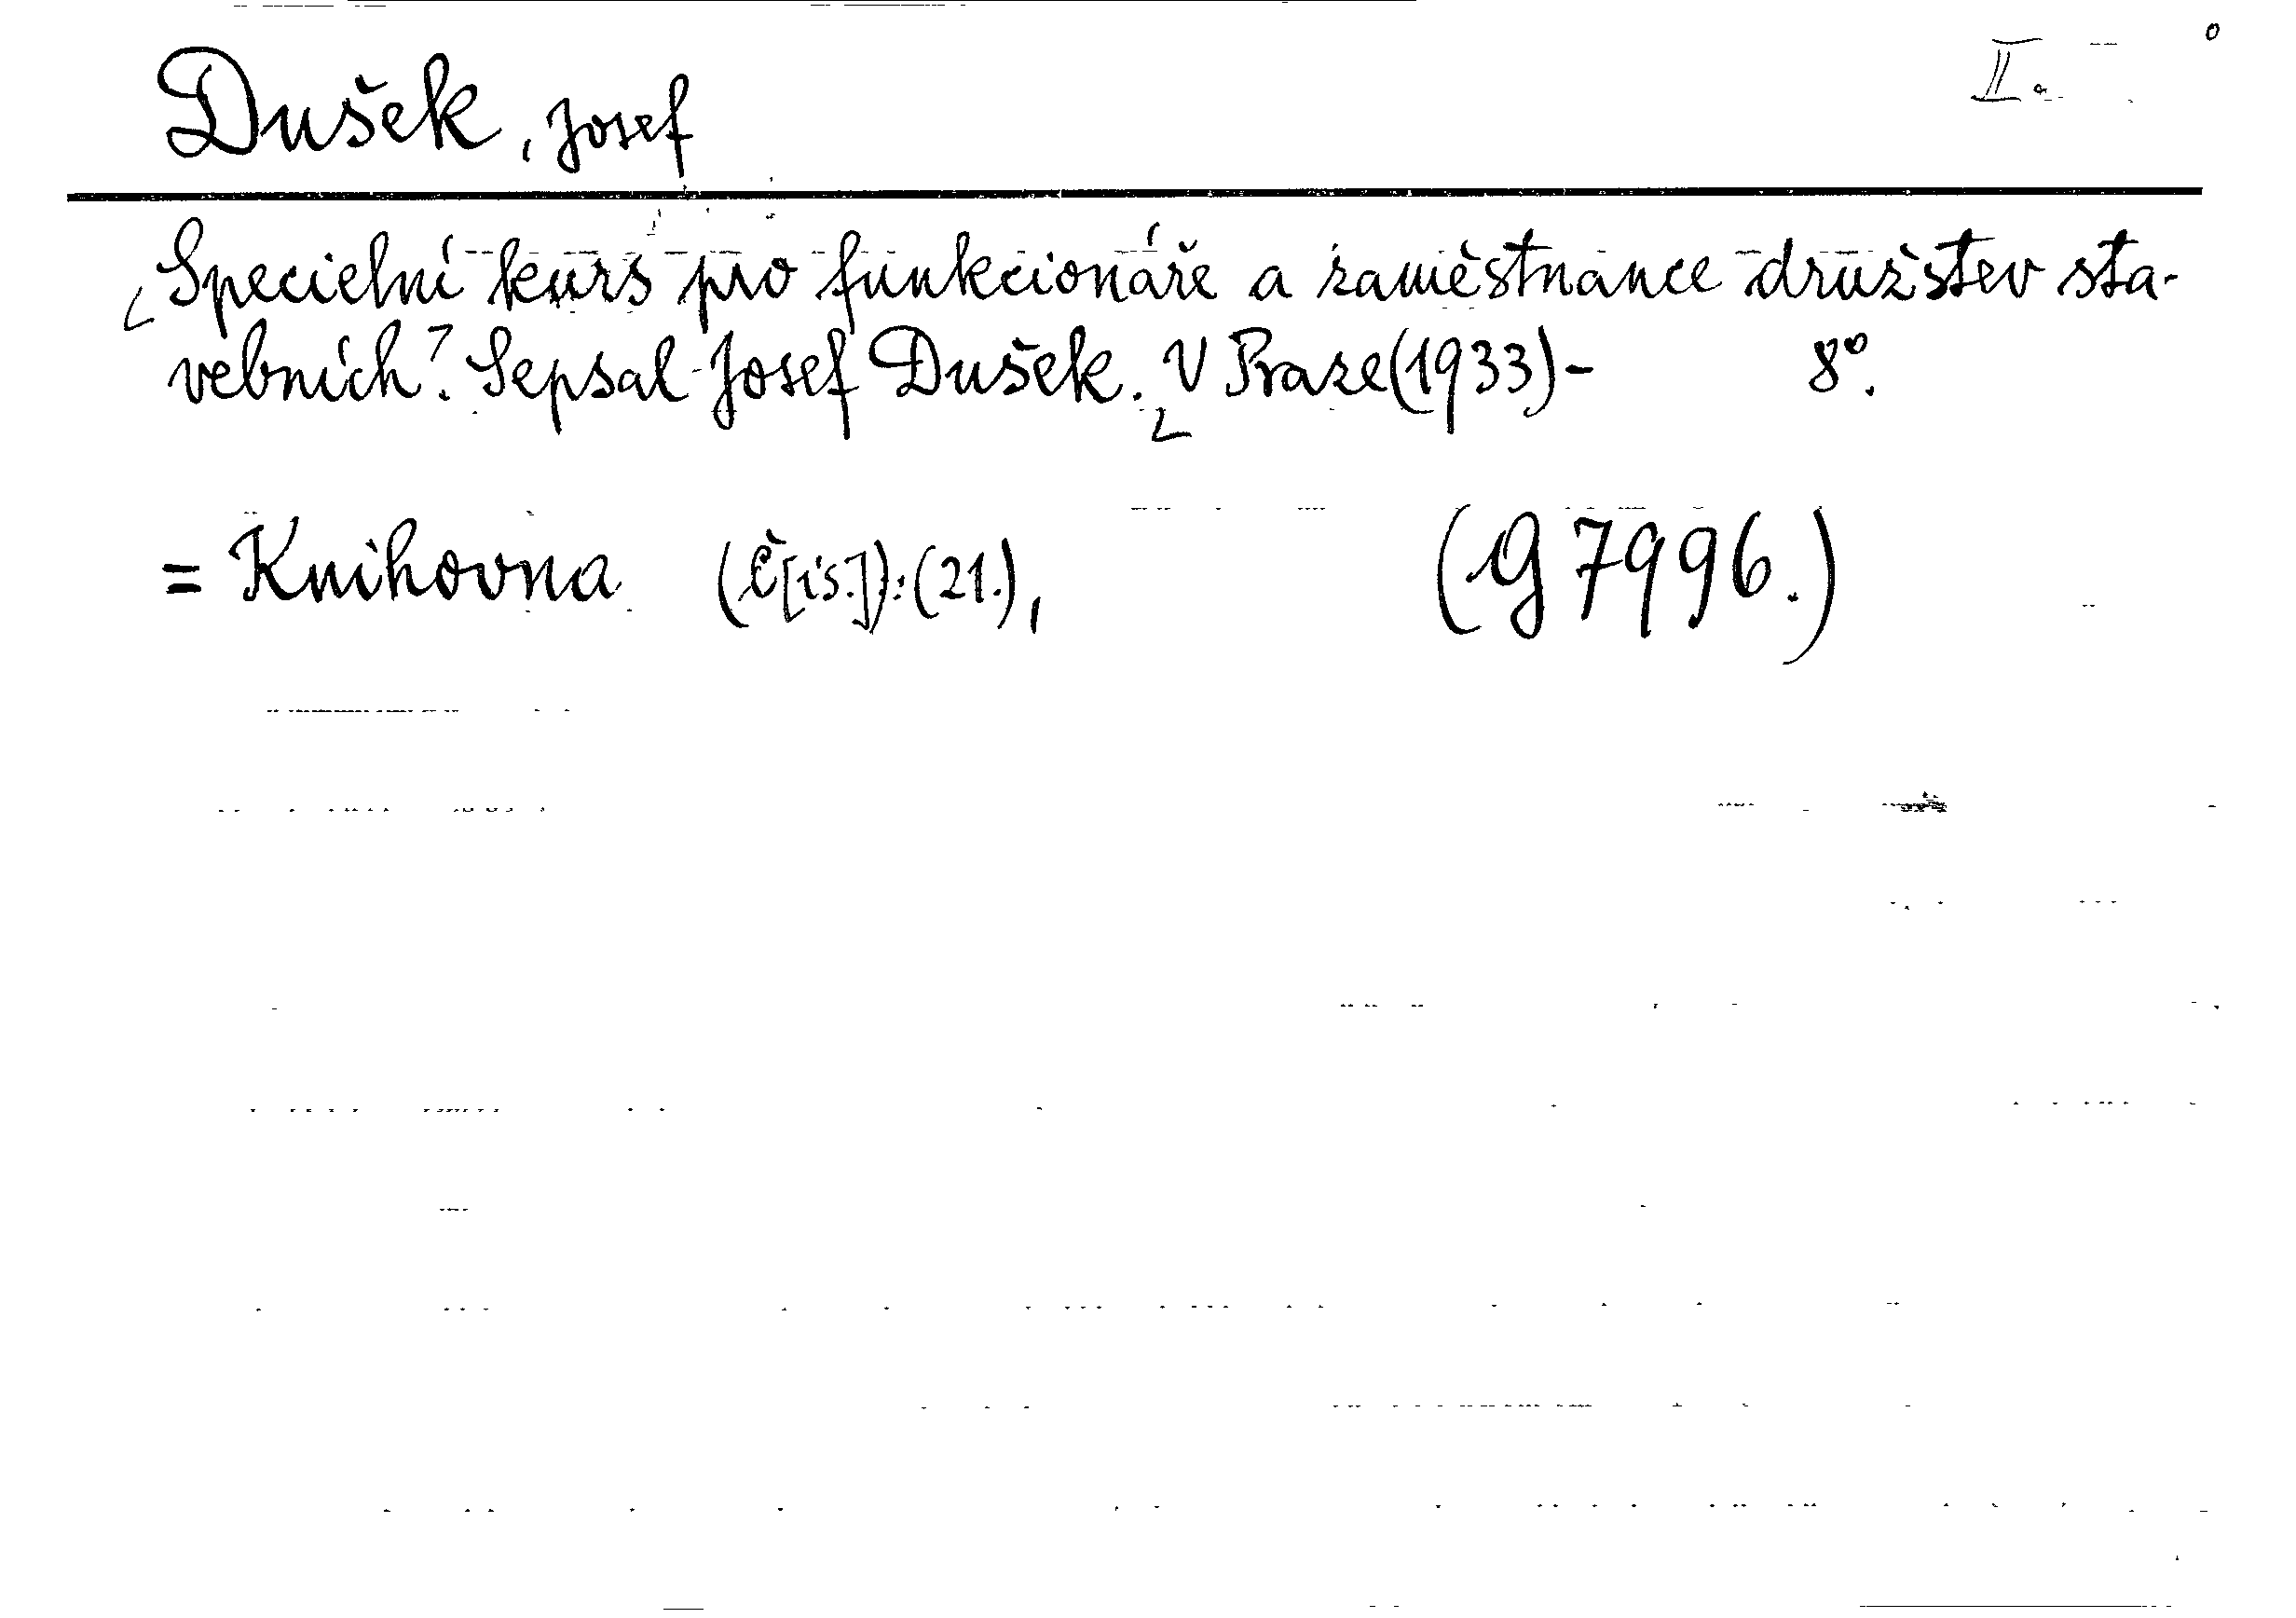 II a
Dušek, Josef
Specielní kurs pro funkcionáře a zaměstnance družstev sta-
vebních. Sepsal Josef Dušek. V Praze (1933) - 8°.
= Knihovna (Č[ís.]): (21.), (G 7996.)